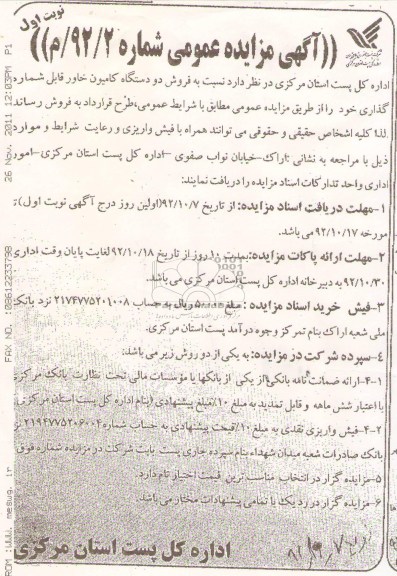 نوبت اول
((آگهی مزایده عمومی شماره ۹۲/۲/م))
اداره کل پست استان مرکزی در نظر دارد نسبت به فروش دو دستگاه کامیون خاور قابل شماره
گذاری خود را از طریق مزایده عمومی مطابق با شرایط عمومی،طرح قرارداد به فروش رساند
لذا کلیه اشخاص حقیقی و حقوقی می توانند همراه با فیش واریزی و رعایت شرایط و موارد
ذیل با مراجعه به نشانی :اراک-خیابان نواب صفوی -اداره کل پست استان مرکزی-امور
اداری واحد تدارکات اسناد مزایده را دریافت نمایند:
۱-مهلت دریافت اسناد مزایده: از تاریخ ۹۲/۱۰/۷(اولین روز درج آگهی نوبت اول)
مورخه ۹۲/۱۰/۱۷ می باشد.
۲-مهلت ارائه پاکات مزایده:بمدت ۱۰روز از تاریخ ۹۲/۱۰/۱۸لغایت پایان وقت اداری
۹۲/۱۰/۳۰ به دبیرخانه اداره کل پست استان مرکزی می باشد.
۳-فیش خرید اسناد مزایده : مبلغ ریال به حساب ۲۱۷۴۷۷۵۲۰۱۰۰۸ نزد بانک
ملی شعبه اراک بنام تمرکز وجوه درآمد پست استان مرکزی.
۴-سپرده شرکت در مزایده: به یکی از دو روش زیر می باشد:
۴-۱-ارائه ضمانت نامه بانکی از یکی از بانکها یا مؤسسات مالی تحت نظارت بانک مرکزی
با اعتبار شش ماهه و قابل تمدید به مبلغ ۱۰٪مبلغ پیشنهادی (بنام اداره کل پست استان مرکزی
۴-۲-فیش واریزی نقدی به مبلغ ۱۰٪قیمت پیشنهادی به حساب شماره ۲۱۹۴۷۷۵۲۰۶۰۰۴ نزد
بانک صادرات شعبه میدان شهداء بنام سپرده جاری پست بابت شرکت در مزایده شماره فوق
۵-مزایده گزار در انتخاب مناسب ترین قیمت اختیار تام دارد.
۶-مزایده گزار در رد یک یا تمامی پیشنهادات مختار می باشد.
اداره کل پست استان مرکزی
26 Nov. 2011 12:03PM P1
FAX NO. :08612233799